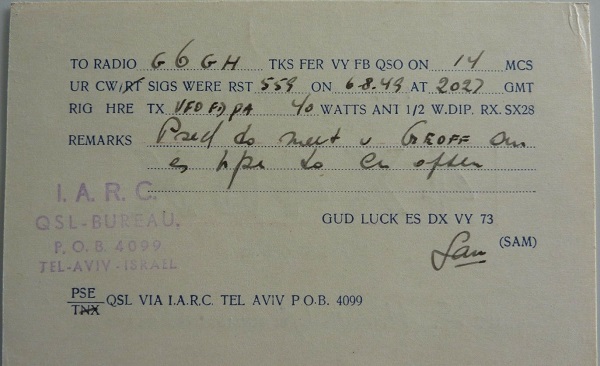 TO RADIO G6GH TKS FER VY FB QSO ON 14 MCS
UR CW/RT SIGS WERE RST 559 ON 6-8-49 AT 2027 GMT
RIG HRE TX VFO FD PA 40 WATTS ANT 1/2 W.DIP. RX. SX28
REMARKS Psed to meet u GEOFF om
es hpe to cu often
I.A.R.C.
QSL-BUREAU,
P.O.B. 4099
TEL-AVIV-ISRAEL
GUD LUCK ES DX VY 73
Sam (SAM)
PSE
TNX QSL VIA I.A.R.C. TEL AVIV P.O.B. 4099